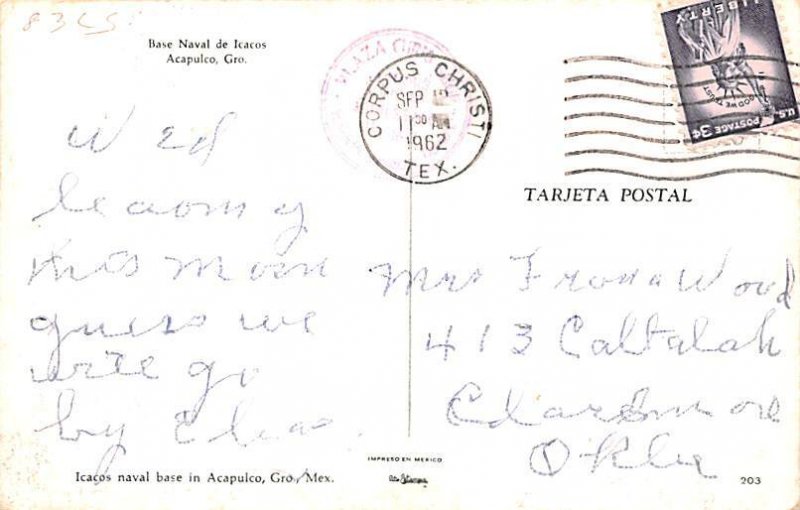 Base Naval de Icacos
Acapulco, Gro.
PLAZA
CORPUS CHRISTI
SEP
11 30 AM
1962
TEX.
LIBERTY
IN GOD WE TRUST
U.S. POSTAGE 3¢
TARJETA POSTAL
Wed
leaving
this morn
guess we
will go
by
Mrs Frona Wood
413
Claremore
Okla
IMPRESO EN MEXICO
Icacos naval base in Acapulco, Gro, Mex.
203